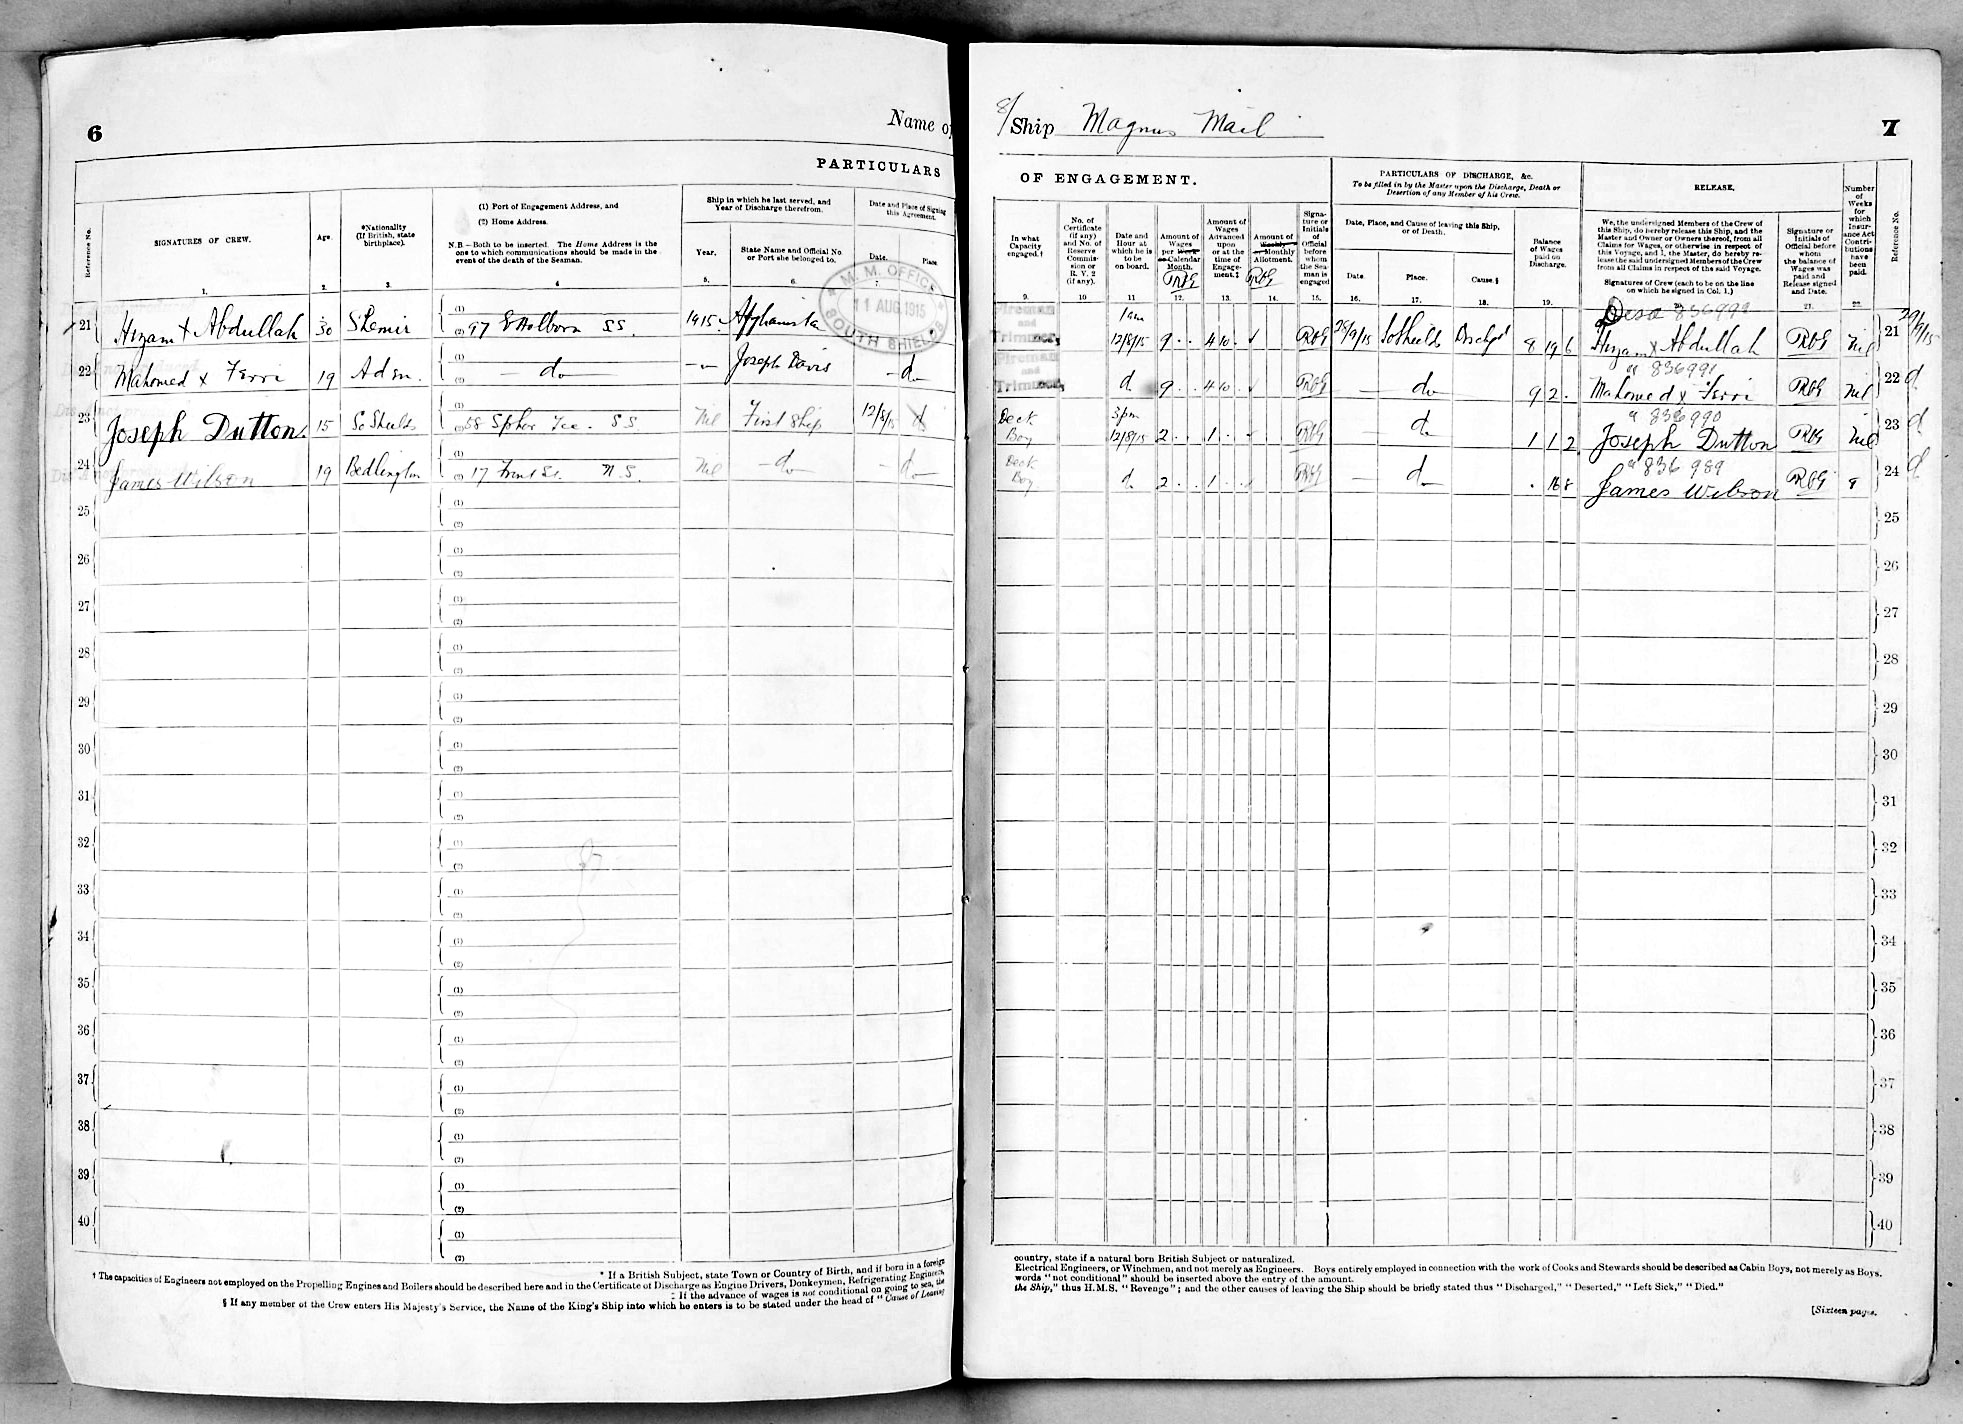 6
Name of
PARTICULARS
Reference No.
SIGNATURES OF CREW.
Age.
*Nationality
(If British, state
birthplace).
(1) Port of Engagement Address, and
(2) Home Address.
N.B.—Both to be inserted. The Home Address is the
one to which communications should be made in the
event of the death of the Seaman.
Ship in which he last served, and
Year of Discharge therefrom.
Year.
State Name and Official No.
or Port she belonged to.
Date and Place of Signing
this Agreement.
Date.
Place
1. 2. 3. 4 5. 6. 7.
M. M. OFFICE
11 AUG. 1915
SOUTH SHIELDS
21 Hizam + Abdullah 30 (1) (2) 97 E Holborn SS. 1915
22 Mahomed x Ferri 19 Aden. (1) (2) do Joseph Davis do
23 Joseph Dutton. 15 So Shields (1) (2) Nil First Ship 12/8/15 do
24 James Wilson 19 Bedlington (1) (2) 17 Front St. N.S. Nil do do
25 (1) (2)
26 (1) (2)
27 (1) (2)
28 (1) (2)
29 (1) (2)
30 (1) (2)
31 (1) (2)
32 (1) (2)
33 (1) (2)
34 (1) (2)
35 (1) (2)
36 (1) (2)
37 (1) (2)
38 (1) (2)
39 (1) (2)
40 (1) (2)
* If a British Subject, state Town or Country of Birth, and if born in a foreign
† The capacities of Engineers not employed on the Propelling Engines and Boilers should be described here and in the Certificate of Discharge as Engine Drivers, Donkeymen, Refrigerating Engineers,
‡ If the advance of wages is not conditional on going to sea, the
§ If any member of the Crew enters His Majesty's Service, the Name of the King's Ship into which he enters is to be stated under the head of "Cause of Leaving
Ship Magnus Mail
7
OF ENGAGEMENT.
PARTICULARS OF DISCHARGE, &c.
To be filled in by the Master upon the Discharge, Death or
Desertion of any Member of his Crew.
RELEASE.
Number
of
Weeks
for
which
Insur-
ance Act
Contri-
butions
have
been
paid.
Reference No.
In what
Capacity
engaged.†
No. of
Certificate
(if any)
and No. of
Reserve
Commis-
sion or
R. V. 2
(if any).
Date and
Hour at
which he is
to be
on board.
Amount of
Wages
per Week
or Calendar
Month.
Amount of
Wages
Advanced
upon
or at the
time of
Engage-
ment.‡
Amount of
Weekly
or Monthly
Allotment.
Signa-
ture or
Initials
of
Official
before
whom
the Sea-
man is
engaged
Date, Place, and Cause of leaving this Ship,
or of Death.
Date.
Place.
Cause.§
Balance
of Wages
paid on
Discharge.
We, the undersigned Members of the Crew of
this Ship, do hereby release this Ship, and the
Master and Owner or Owners thereof, from all
Claims for Wages, or otherwise in respect of
this Voyage, and I, the Master, do hereby re-
lease the said undersigned Members of the Crew
from all Claims in respect of the said Voyage.
Signatures of Crew (each to be on the line
on which he signed in Col. 1.)
Signature or
Initials of
Official before
whom
the balance of
Wages was
paid and
Release signed
and Date.
9. 10 11 12. 13. 14. 15. 16. 17. 18. 19. 21. 22
Fireman and Trimmer, 1am 12/8/15 9 . . 4 10 . So Shields 8 19 6 Hizam x Abdullah Nil 21 29/9/15
Fireman and Trimmer, d 9 . . 4 10 . do 9 2 . 836991 Mahomed x Ferri Nil 22 d
Deck Boy 3pm 12/8/15 2 . . 1 . . do 1 1 2 836990 Joseph Dutton Nil 23 d
Deck Boy. d 2 . . 1 . . do . 16 8 836989 James Wilson 8 24 d
25
26
27
28
29
30
31
32
33
34
35
36
37
38
39
40
country, state if a natural born British Subject or naturalized.
Electrical Engineers, or Winchmen, and not merely as Engineers. Boys entirely employed in connection with the work of Cooks and Stewards should be described as Cabin Boys, not merely as Boys.
words "not conditional" should be inserted above the entry of the amount.
the Ship," thus H.M.S. "Revenge"; and the other causes of leaving the Ship should be briefly stated thus "Discharged," "Deserted," "Left Sick," "Died."
[Sixteen pages.